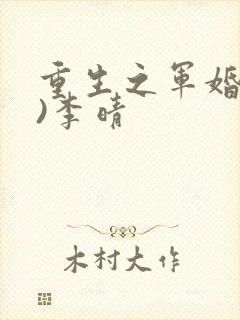 重生之军婚
)李晴
木村大作